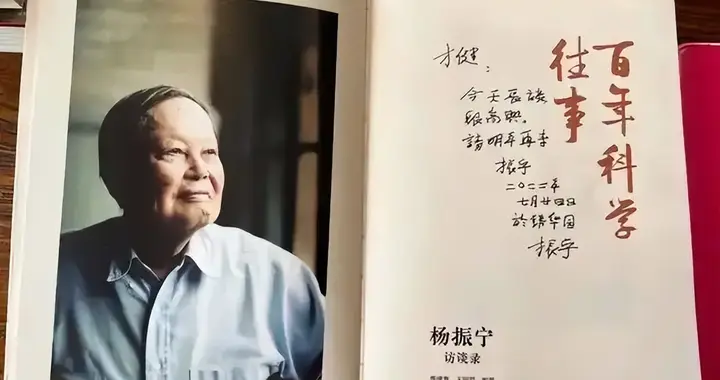 百年科学
往事
才健：
今天長談
很高興，
請明年再来
振宁
二〇二二年
七月廿四日
於清华园
振宁
杨振宁
访谈录